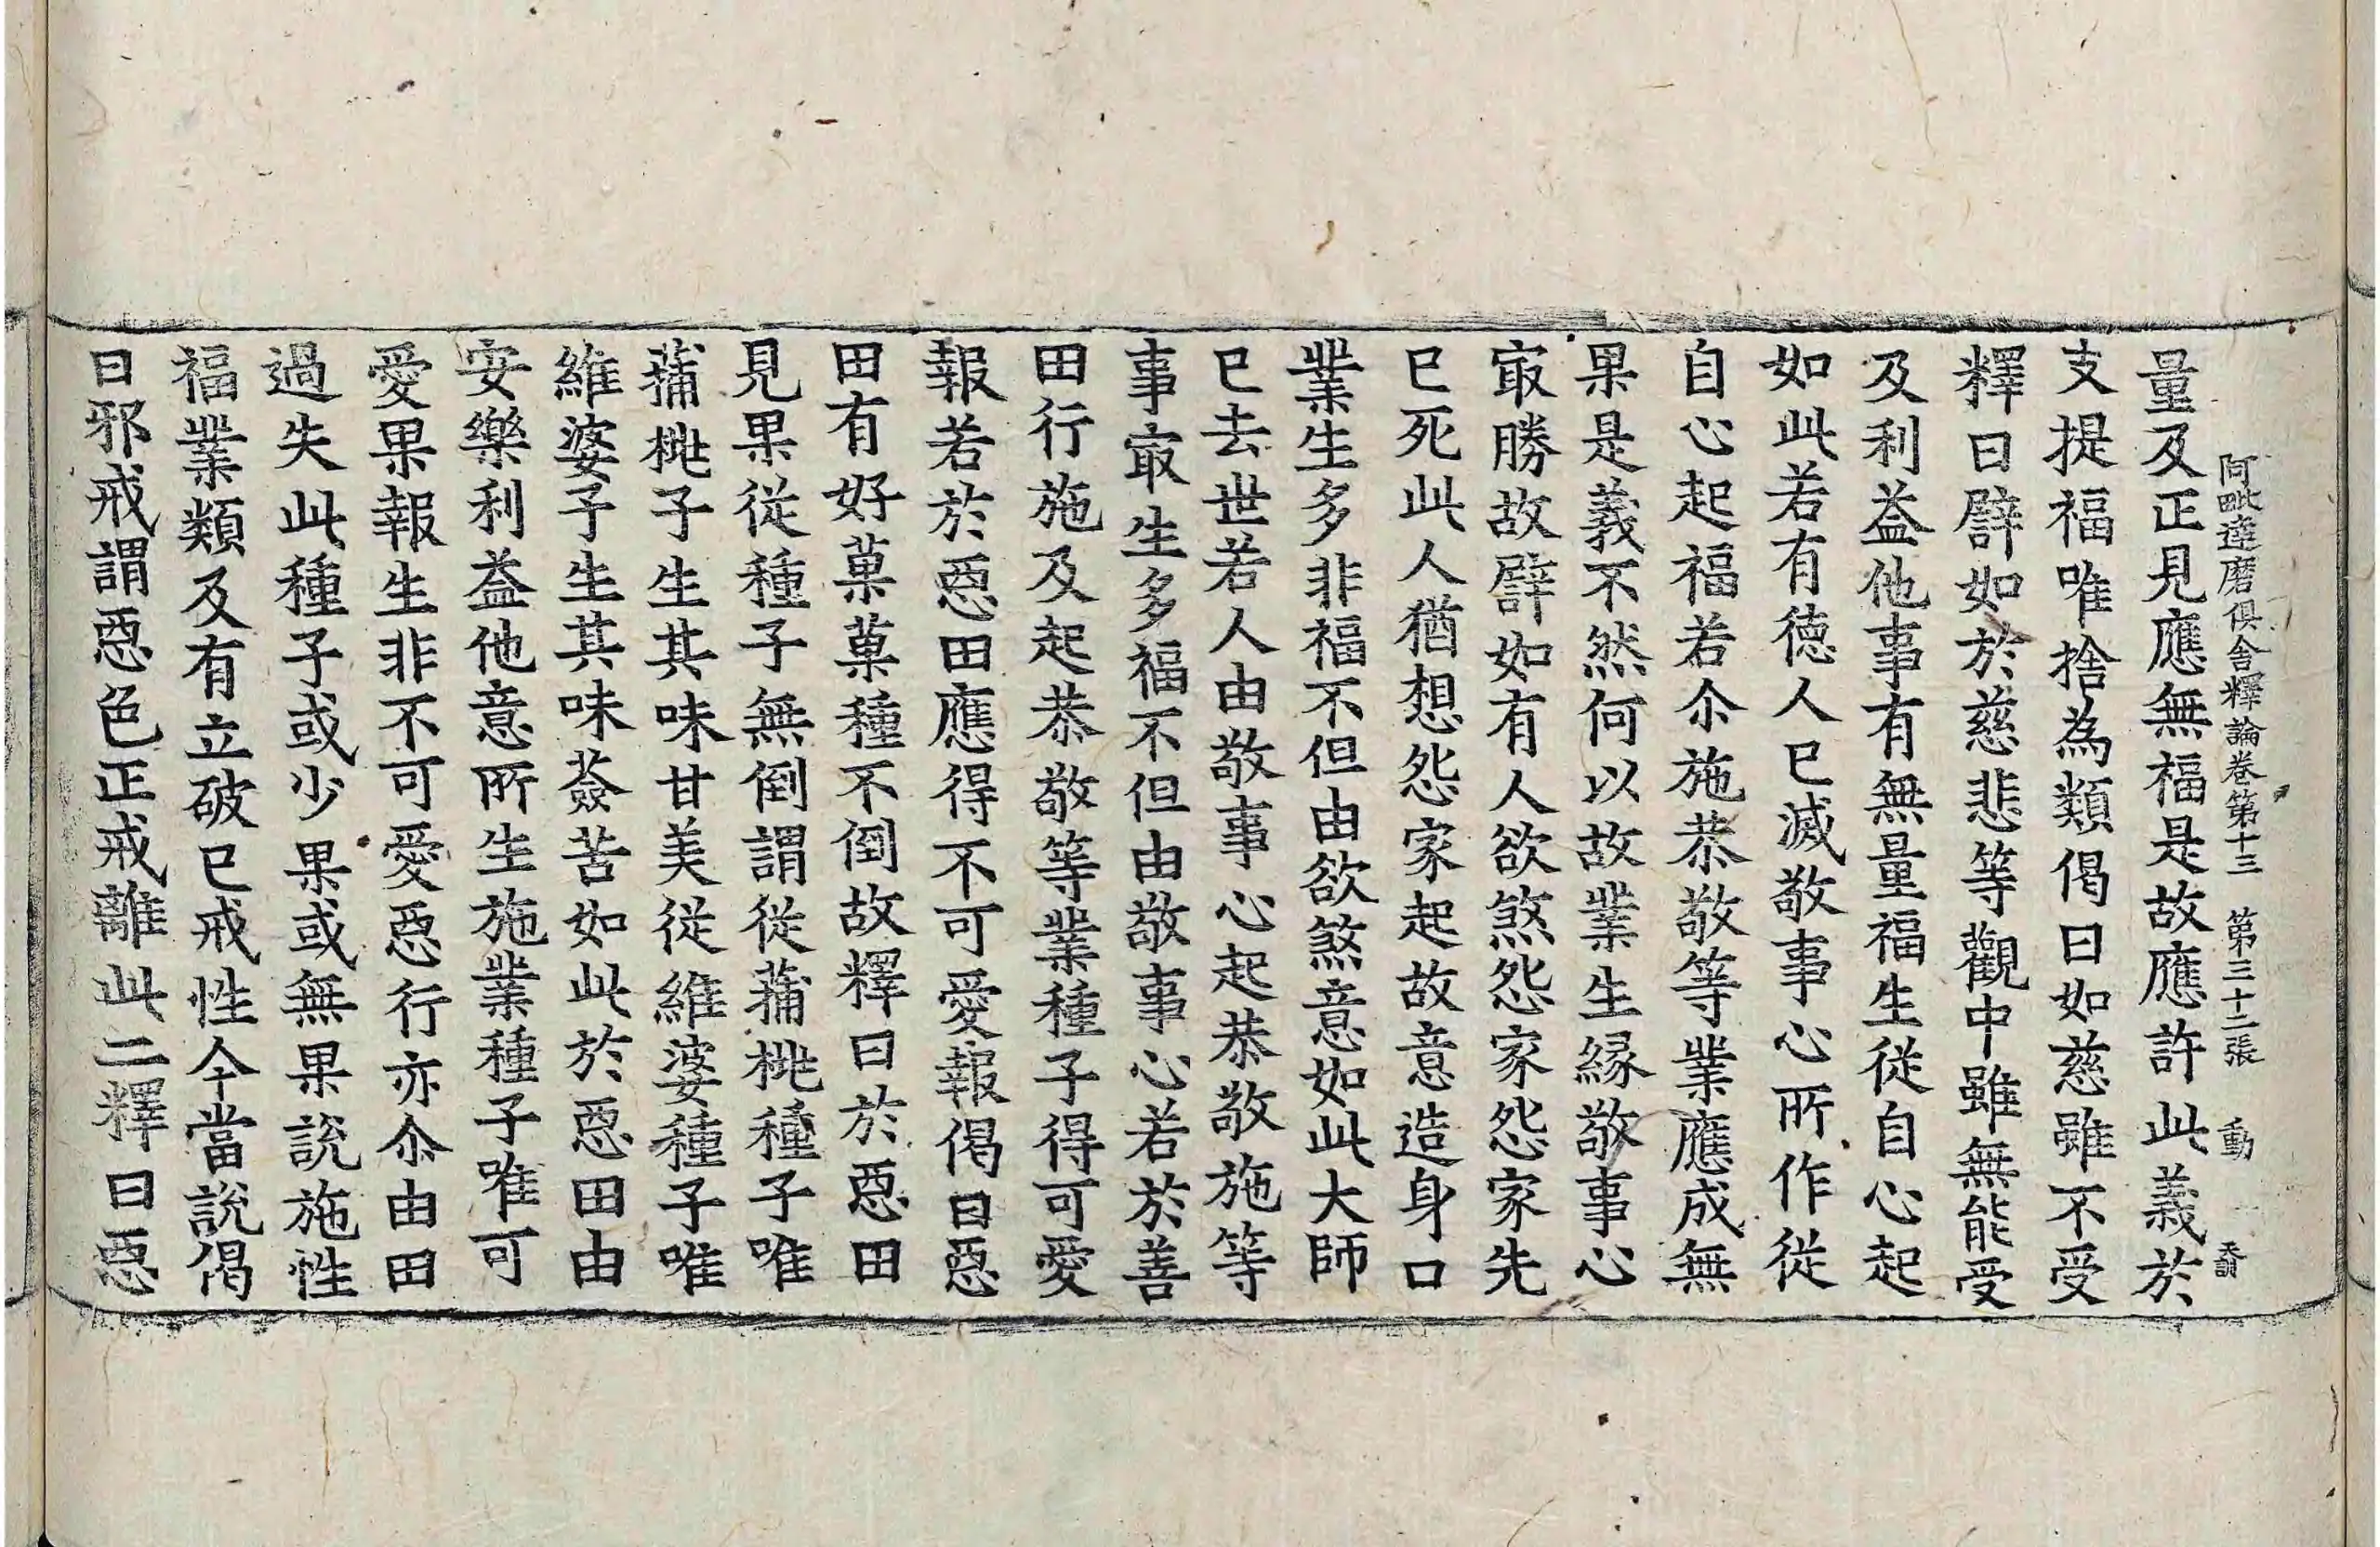 阿毗達磨俱舍釋論卷第十三　第三十二張　動
量及正見應無福是故應許此義於
支提福唯捨為類偈曰如慈雖不受
釋曰譬如於慈悲等觀中雖無能受
及利益他事有無量福生從自心起
如此若有德人已滅敬事心所作從
自心起福若尒施恭敬等業應成無
果是義不然何以故業生緣敬事心
㝡勝故譬如有人欲煞怨家怨家先
已死此人猶想怨家起故意造身口
業生多非福不但由欲煞意如此大師
已去世若人由敬事心起恭敬施等
事㝡生多福不但由敬事心若於善
田行施及起恭敬等業種子得可愛
報若於惡田應得不可愛報偈曰惡
田有好菓菓種不倒故釋曰於惡田
見果從種子無倒謂從蒱桃種子唯
蒱桃子生其味甘美從維婆種子唯
維婆子生其味薟苦如此於惡田由
安樂利益他意所生施業種子唯可
愛果報生非不可愛惡行亦尒由田
過失此種子或少果或無果說施性
福業類及有立破已戒性今當說偈
曰邪戒謂惡色正戒離此二釋曰惡